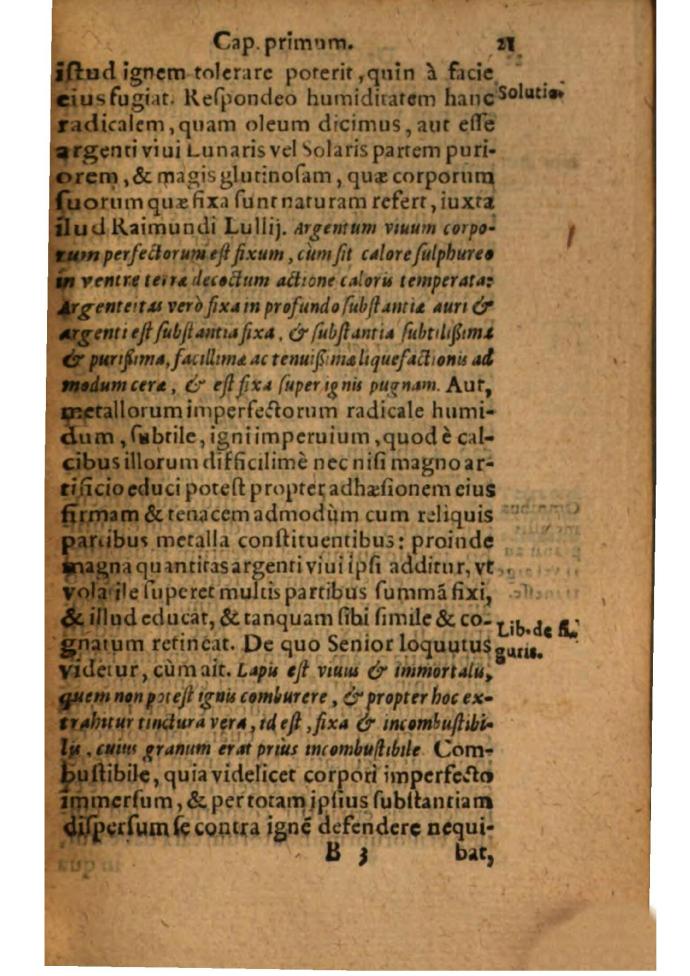 Cap. primum. 21
iſtud ignem tolerare poterit, quin à facie
eius fugiat. Reſpondeo humiditatem hanc
Solutio.
radicalem, quam oleum dicimus, aut eſſe
argenti viui Lunaris vel Solaris partem puri-
orem, & magis glutinoſam, quæ corporum
ſuorum quæ fixa ſunt naturam refert, iuxta
illud Raimundi Lullij. Argentum viuum corpo-
rum perfectorum eſt fixum, cùm ſit calore ſulphureo
in ventre terræ decoctum actione caloris temperata:
Argenteitas verò fixa in profundo ſubſtantiæ auri &
argenti eſt ſubſtantia fixa, & ſubſtantia ſubtilißima
& purißima, facillimæ ac tenuißimæ liquefactionis ad
modum ceræ, & eſt fixa ſuper ignis pugnam. Aut,
metallorum imperfectorum radicale humi-
dum, ſubtile, igni imperuium, quod è cal-
cibus illorum difficilimè nec niſi magno ar-
tificio educi poteſt propter adhæſionem eius
firmam & tenacem admodùm cum reliquis
partibus metalla conſtituentibus: proinde
magna quantitas argenti viui ipſi additur, vt
volatile ſuperet multis partibus ſummã fixi,
& illud educat, & tanquam ſibi ſimile & co-
Lib. de fi-
gnatum retineat. De quo Senior loquutus
guris.
videtur, cùm ait. Lapis eſt viuus & immortalis,
quem non poteſt ignis comburere, & propter hoc ex-
trahitur tinctura vera, id eſt, fixa & incombuſtibi-
lis, cuius granum erat prius incombuſtibile. Com-
buſtibile, quia videlicet corpori imperfecto
immerſum, & per totam ipſius ſubſtantiam
diſperſum ſe contra ignẽ defendere nequi-
B 3 bat,